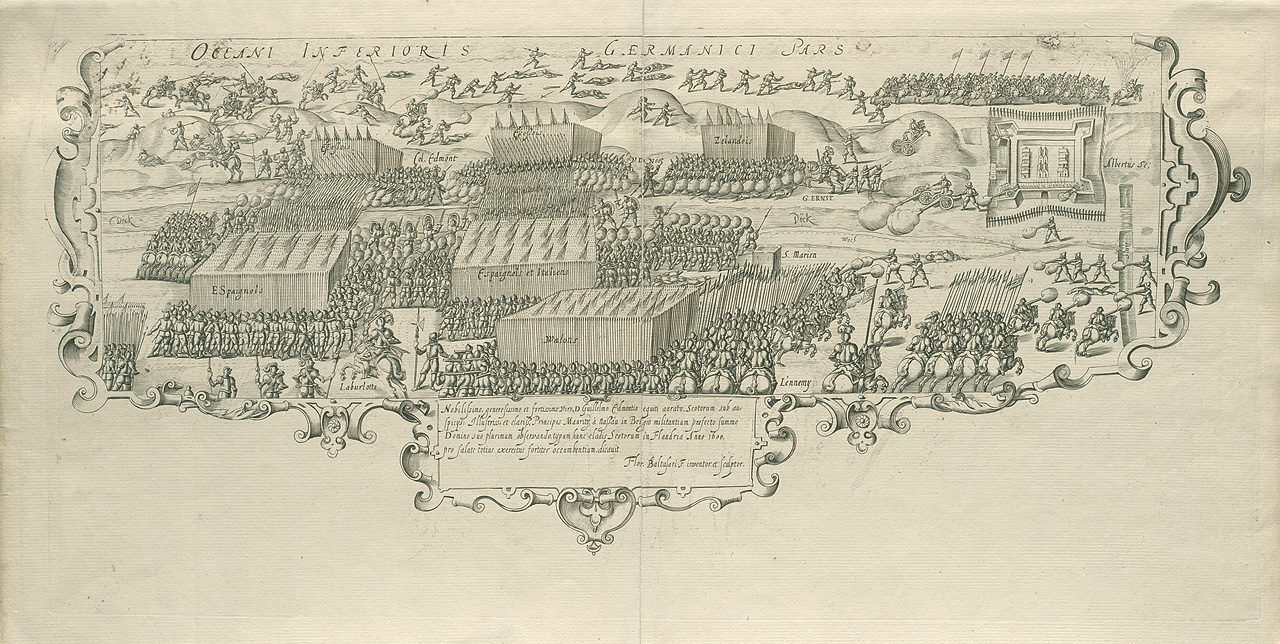 OCEANI INFERIORIS GERMANICI PARS
Zelandois
Col. Edmont
Albertus Sc.
G. ERNST.
Dick
Dick
S. Marien
Espaignols et Italiens
ESpaignols
Walons
Laburlotte
Lennemy
Nobilissimo, generosissimo et fortissimo viro, D. Guillelmo Edmontio equiti aurato, Scotorum sub au-
spicijs Illustriss. et clariss. Principis Mauritij à Nassau in Belgio militantium præfecto summo
Domino suo plurimum observando, typum hunc cladis Scotorum in Flandria Anno 1600.
pro salute totius exercitus fortiter occumbentium, dicavit.
Flor. Baltasari F. inventor et sculptor.